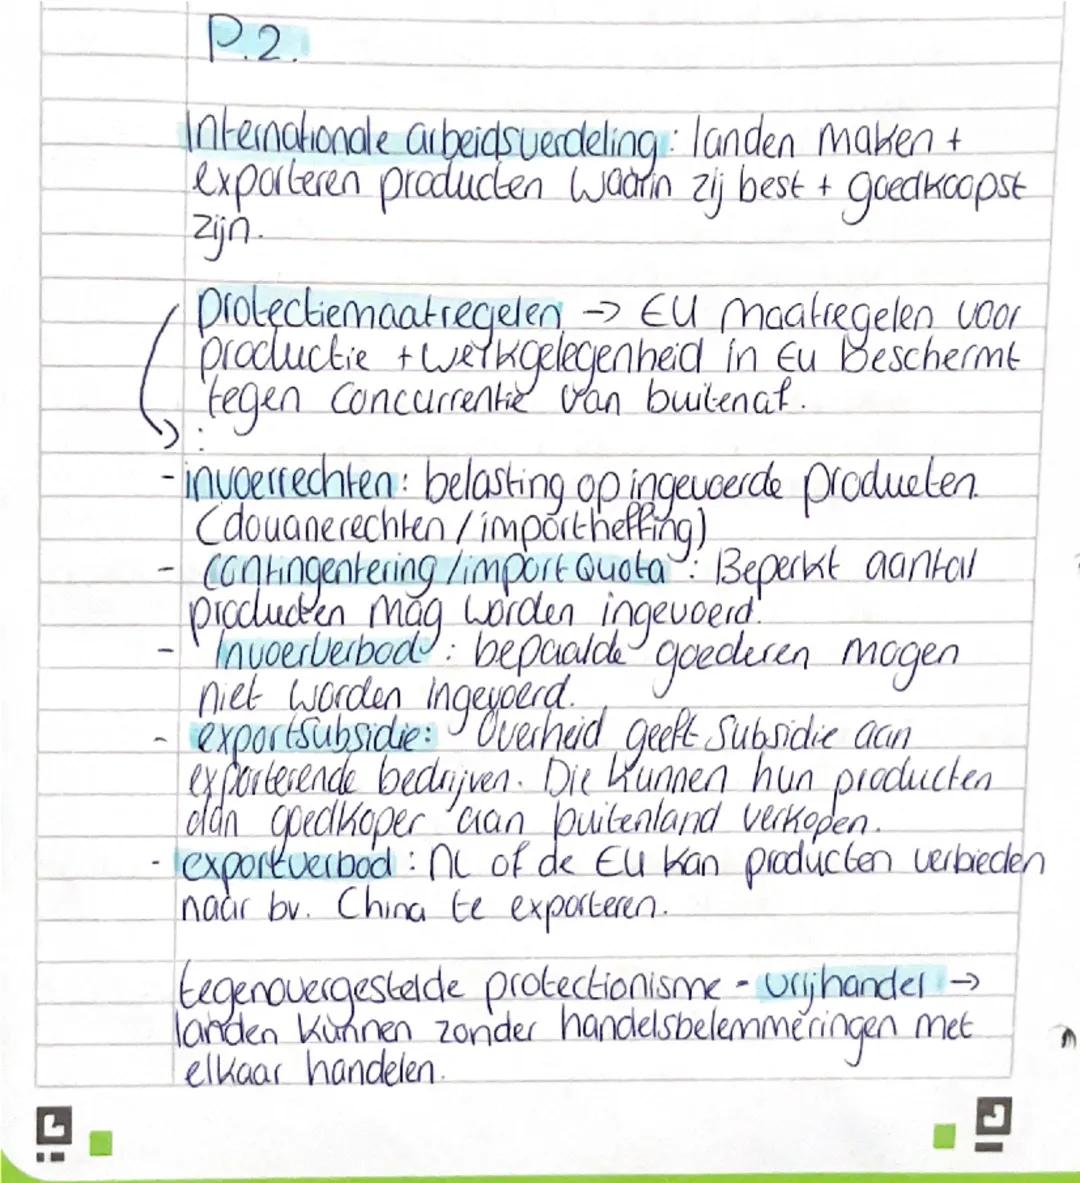 P.2.
Internationale arbeidsverdeling: landen maken +
exporteren producten waarin zij best + goedkoopst
zijn.
protectiemaatregelen → EU maatregelen voor
productie + werkgelegenheid in Eu beschermt
tegen concurrentie van buitenaf.
:
- invoerrechten: belasting op ingevoerde producten.
(douanerechten / importheffing)
- contingentering / import Quota : Beperkt aantal
producten mag worden ingevoerd.
- Invoerverbod : bepaalde goederen mogen
niet worden ingevoerd.
- exportsubsidie: Overheid geeft subsidie aan
exporterende bedrijven. Die kunnen hun producten
dan goedkoper aan buitenland verkopen.
- exportverbod : NL of de EU kan producten verbieden
naar bv. China te exporteren.
tegenovergestelde protectionisme - vrijhandel →
landen kunnen zonder handelsbelemmeringen met
elkaar handelen.